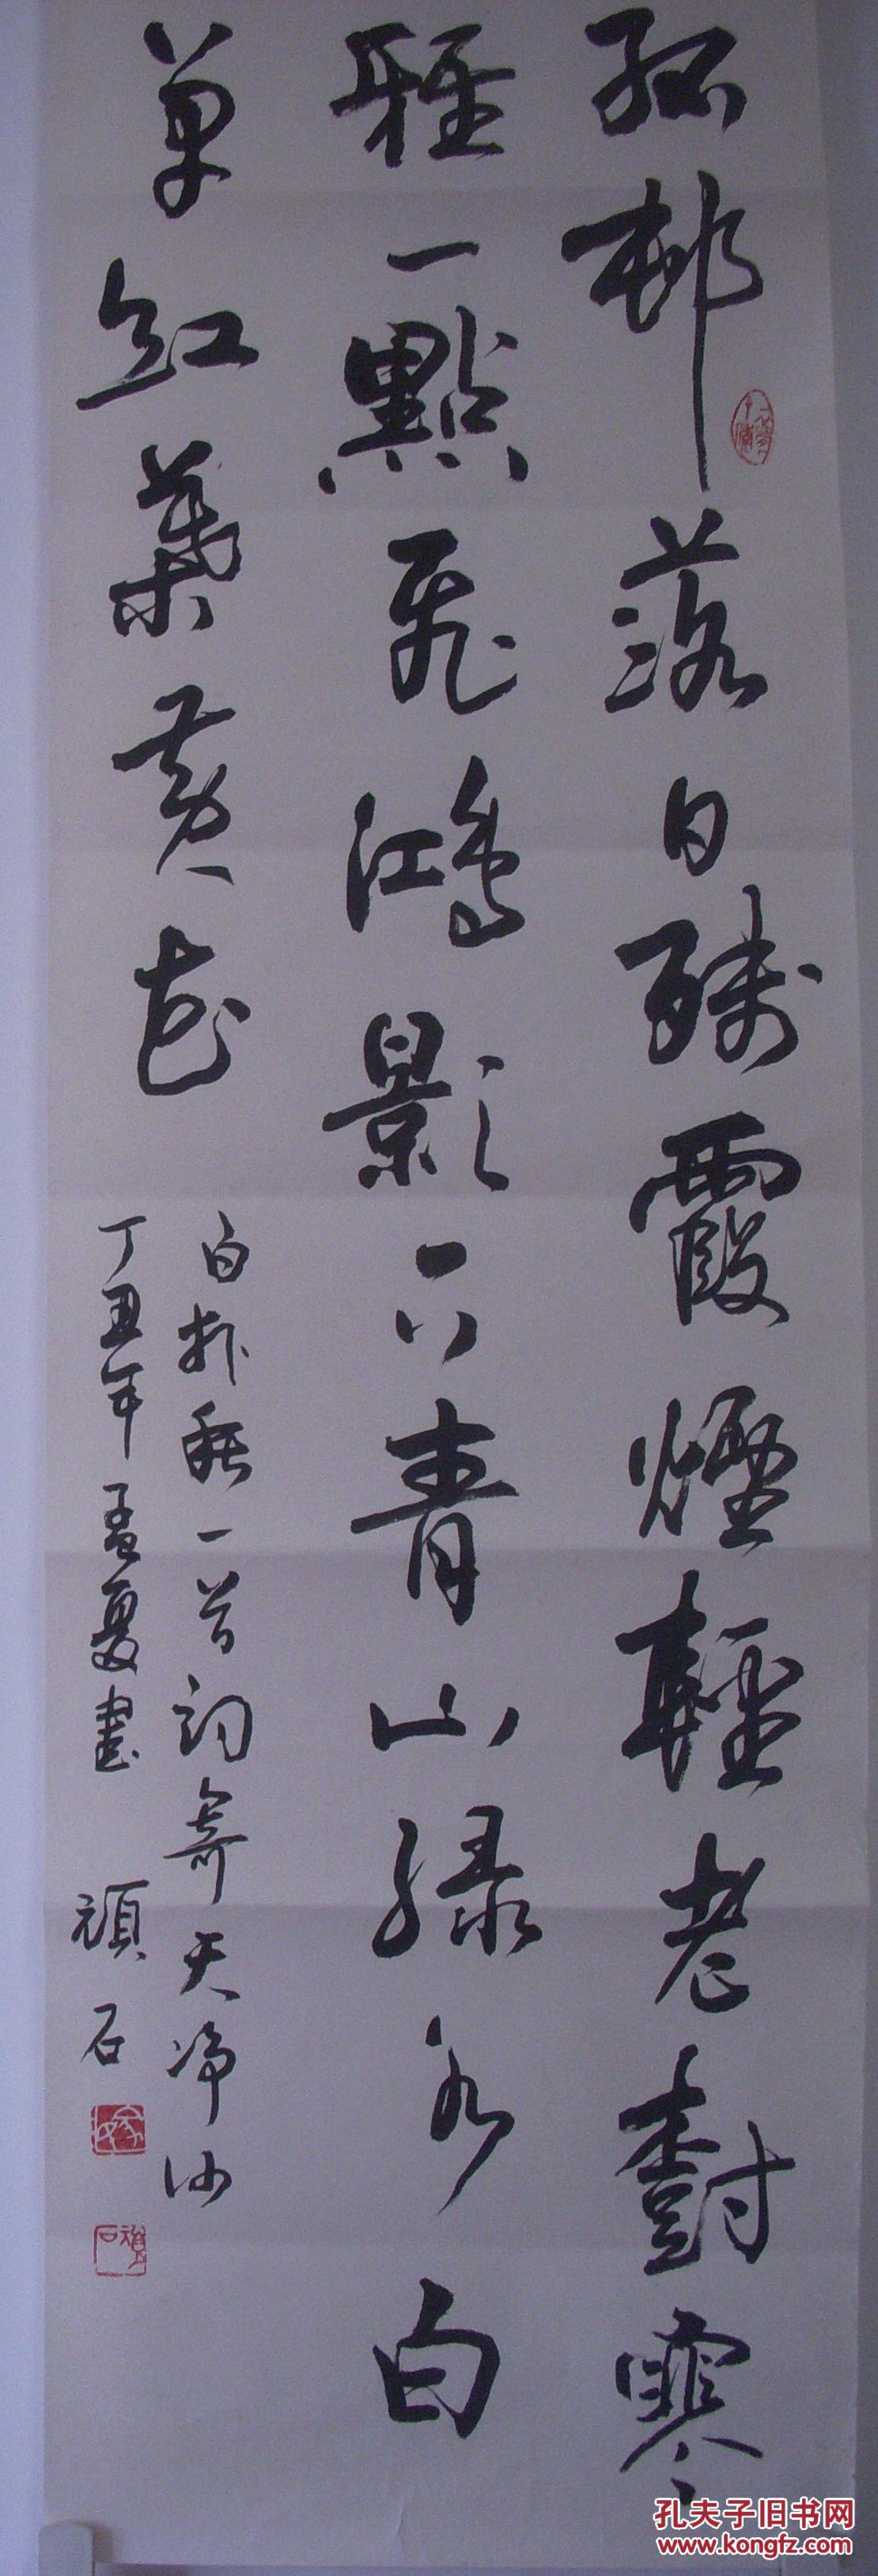 孤邨落日殘霞煙輕老樹寒
鴉一點飛鴻影下青山綠水白
草紅葉黃花
白朴秋一首詞寄天淨沙
丁丑年孟夏書 頑石
孔夫子旧书网
www.kongfz.com